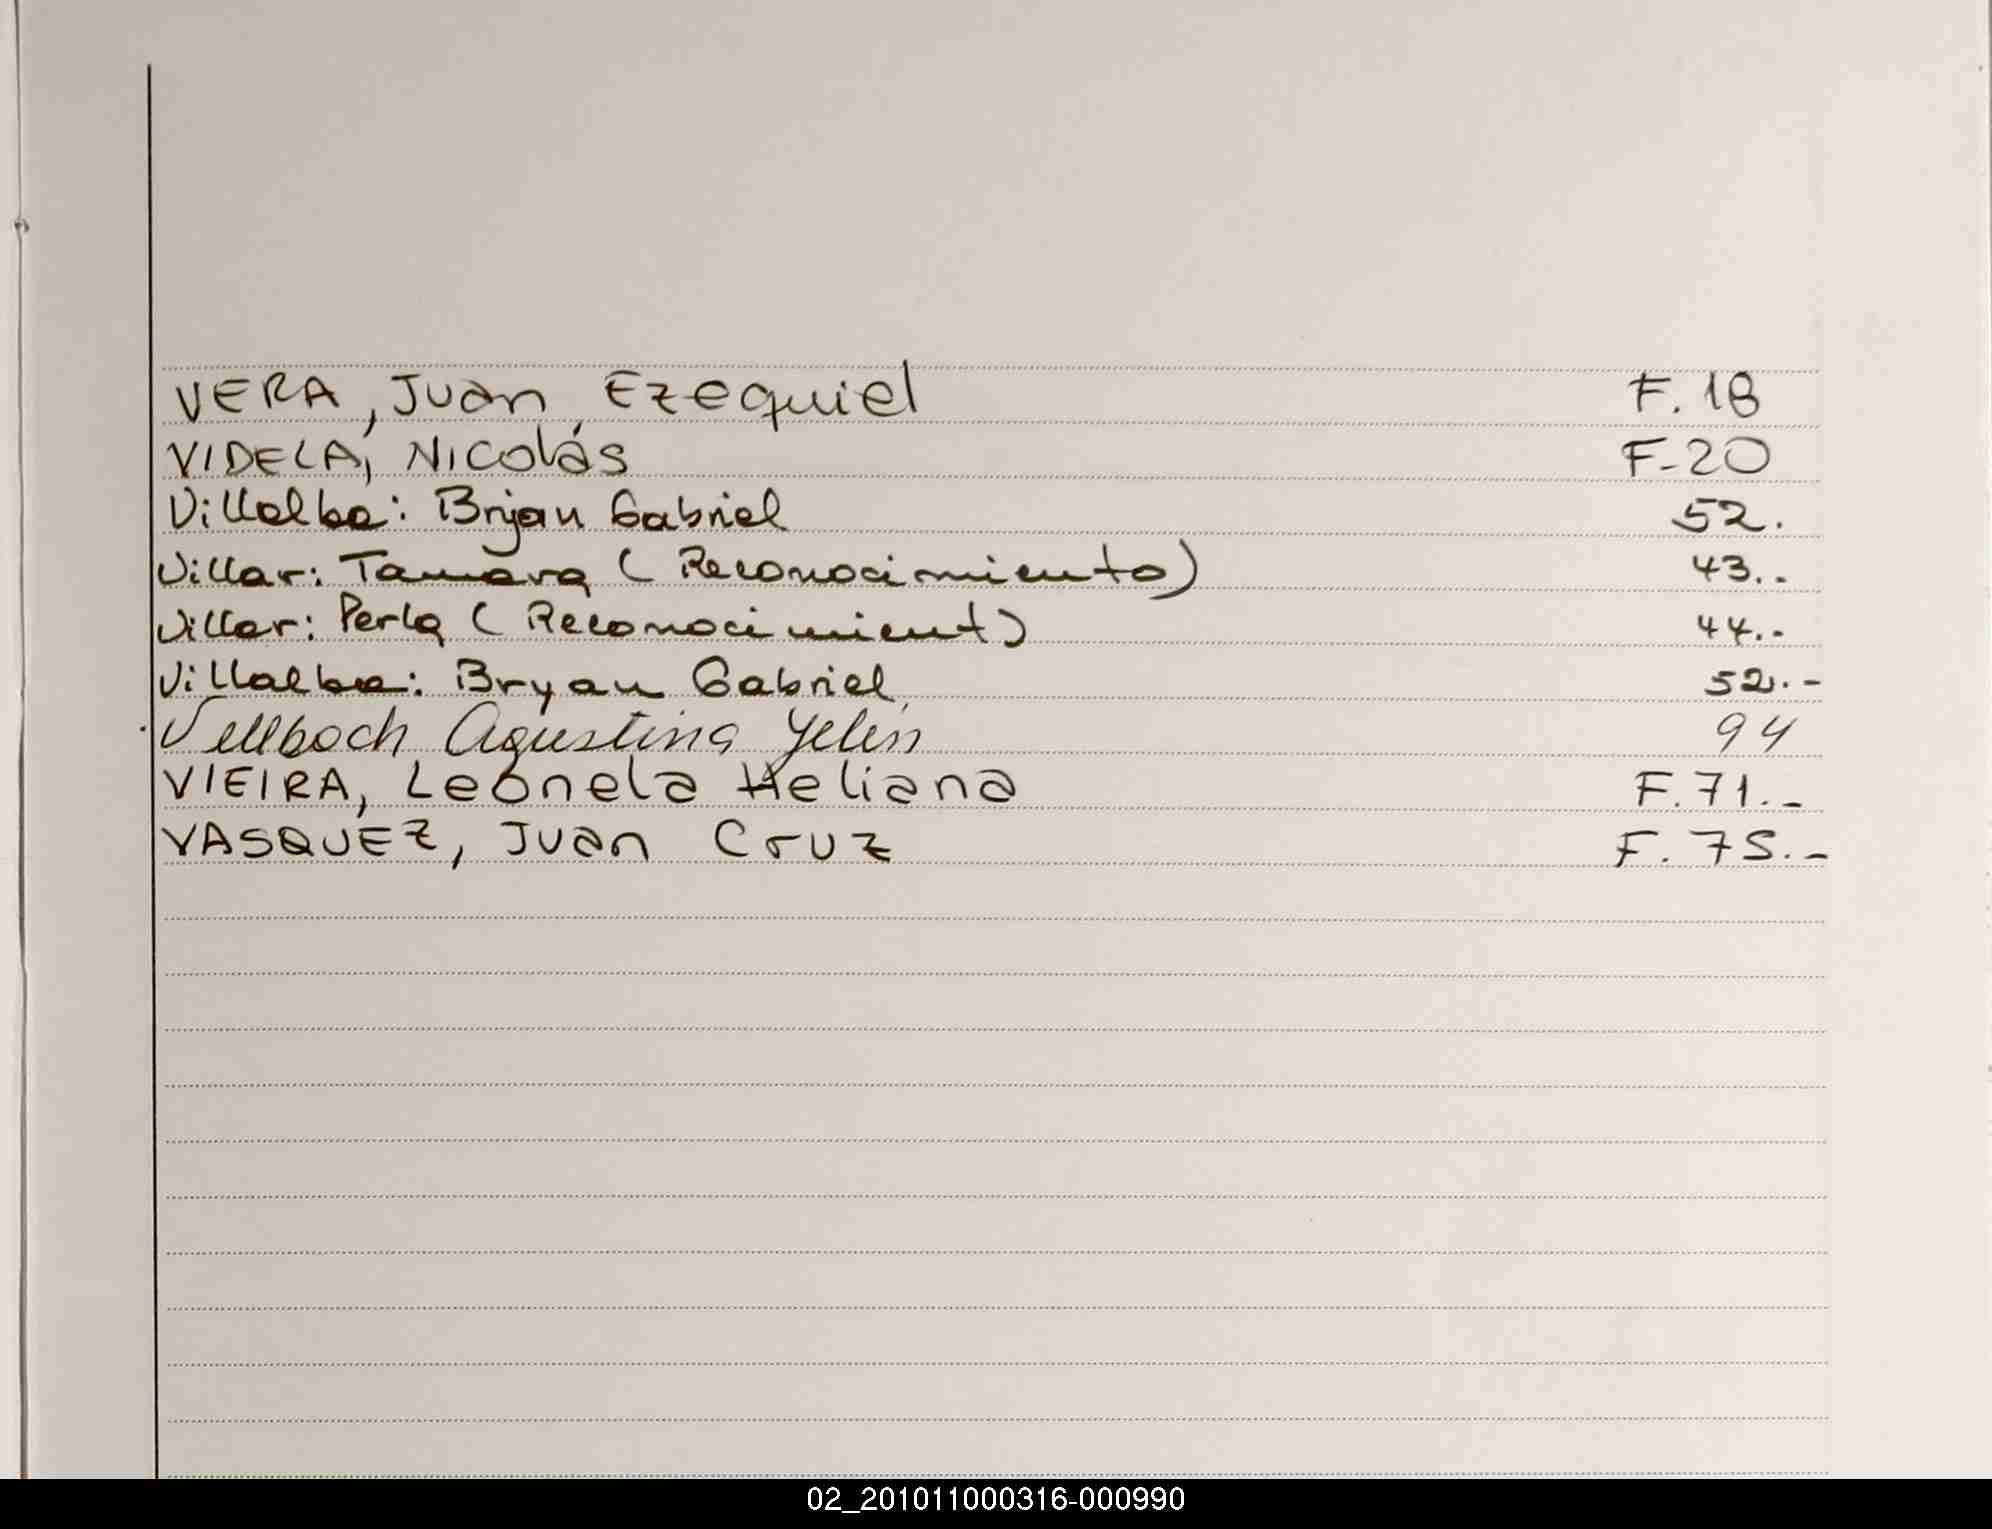 VERA, Juan Ezequiel F. 18
VIDELA, NICOlás F-20
Villalba: Brian Gabriel 52.
Villar: Tamara (Reconocimiento) 43..
Villar: Perla (Reconocimient) 44.-
Villalba: Bryan Gabriel 52.-
Vellboch Agustina Yelén 94
VIEIRA, Leonela Heliana F. 71.-
VASQUEZ, Juan Cruz F. 75.-
02_201011000316-000990